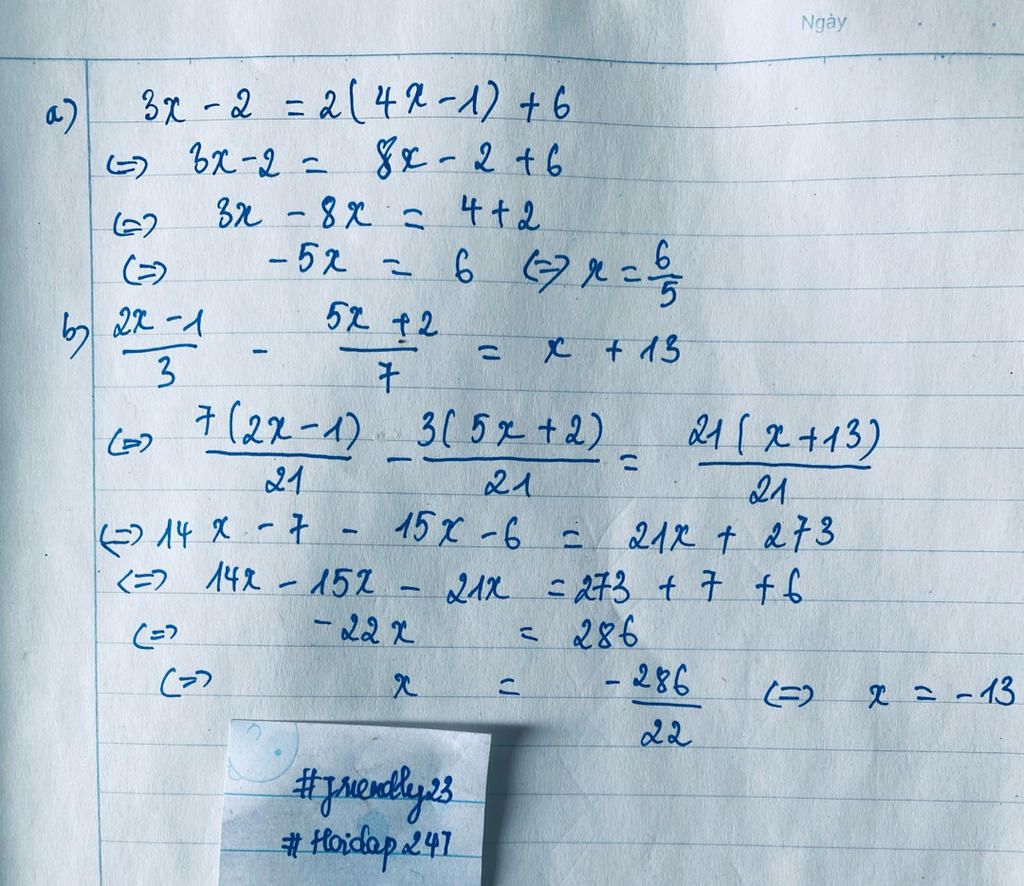 Ngày
a) 3x - 2 = 2(4x - 1) + 6
(=) 3x - 2 = 8x - 2 + 6
(=) 3x - 8x = 4 + 2
(=) -5x = 6 (=) x = 6/5
b) (2x - 1)/3 - (5x + 2)/7 = x + 13
(=) 7(2x - 1)/21 - 3(5x + 2)/21 = 21(x + 13)/21
(=) 14x - 7 - 15x - 6 = 21x + 273
(=) 14x - 15x - 21x = 273 + 7 + 6
(=) -22x = 286
(=) x = -286/22 (=) x = -13
#friendly23
#Hoidap247